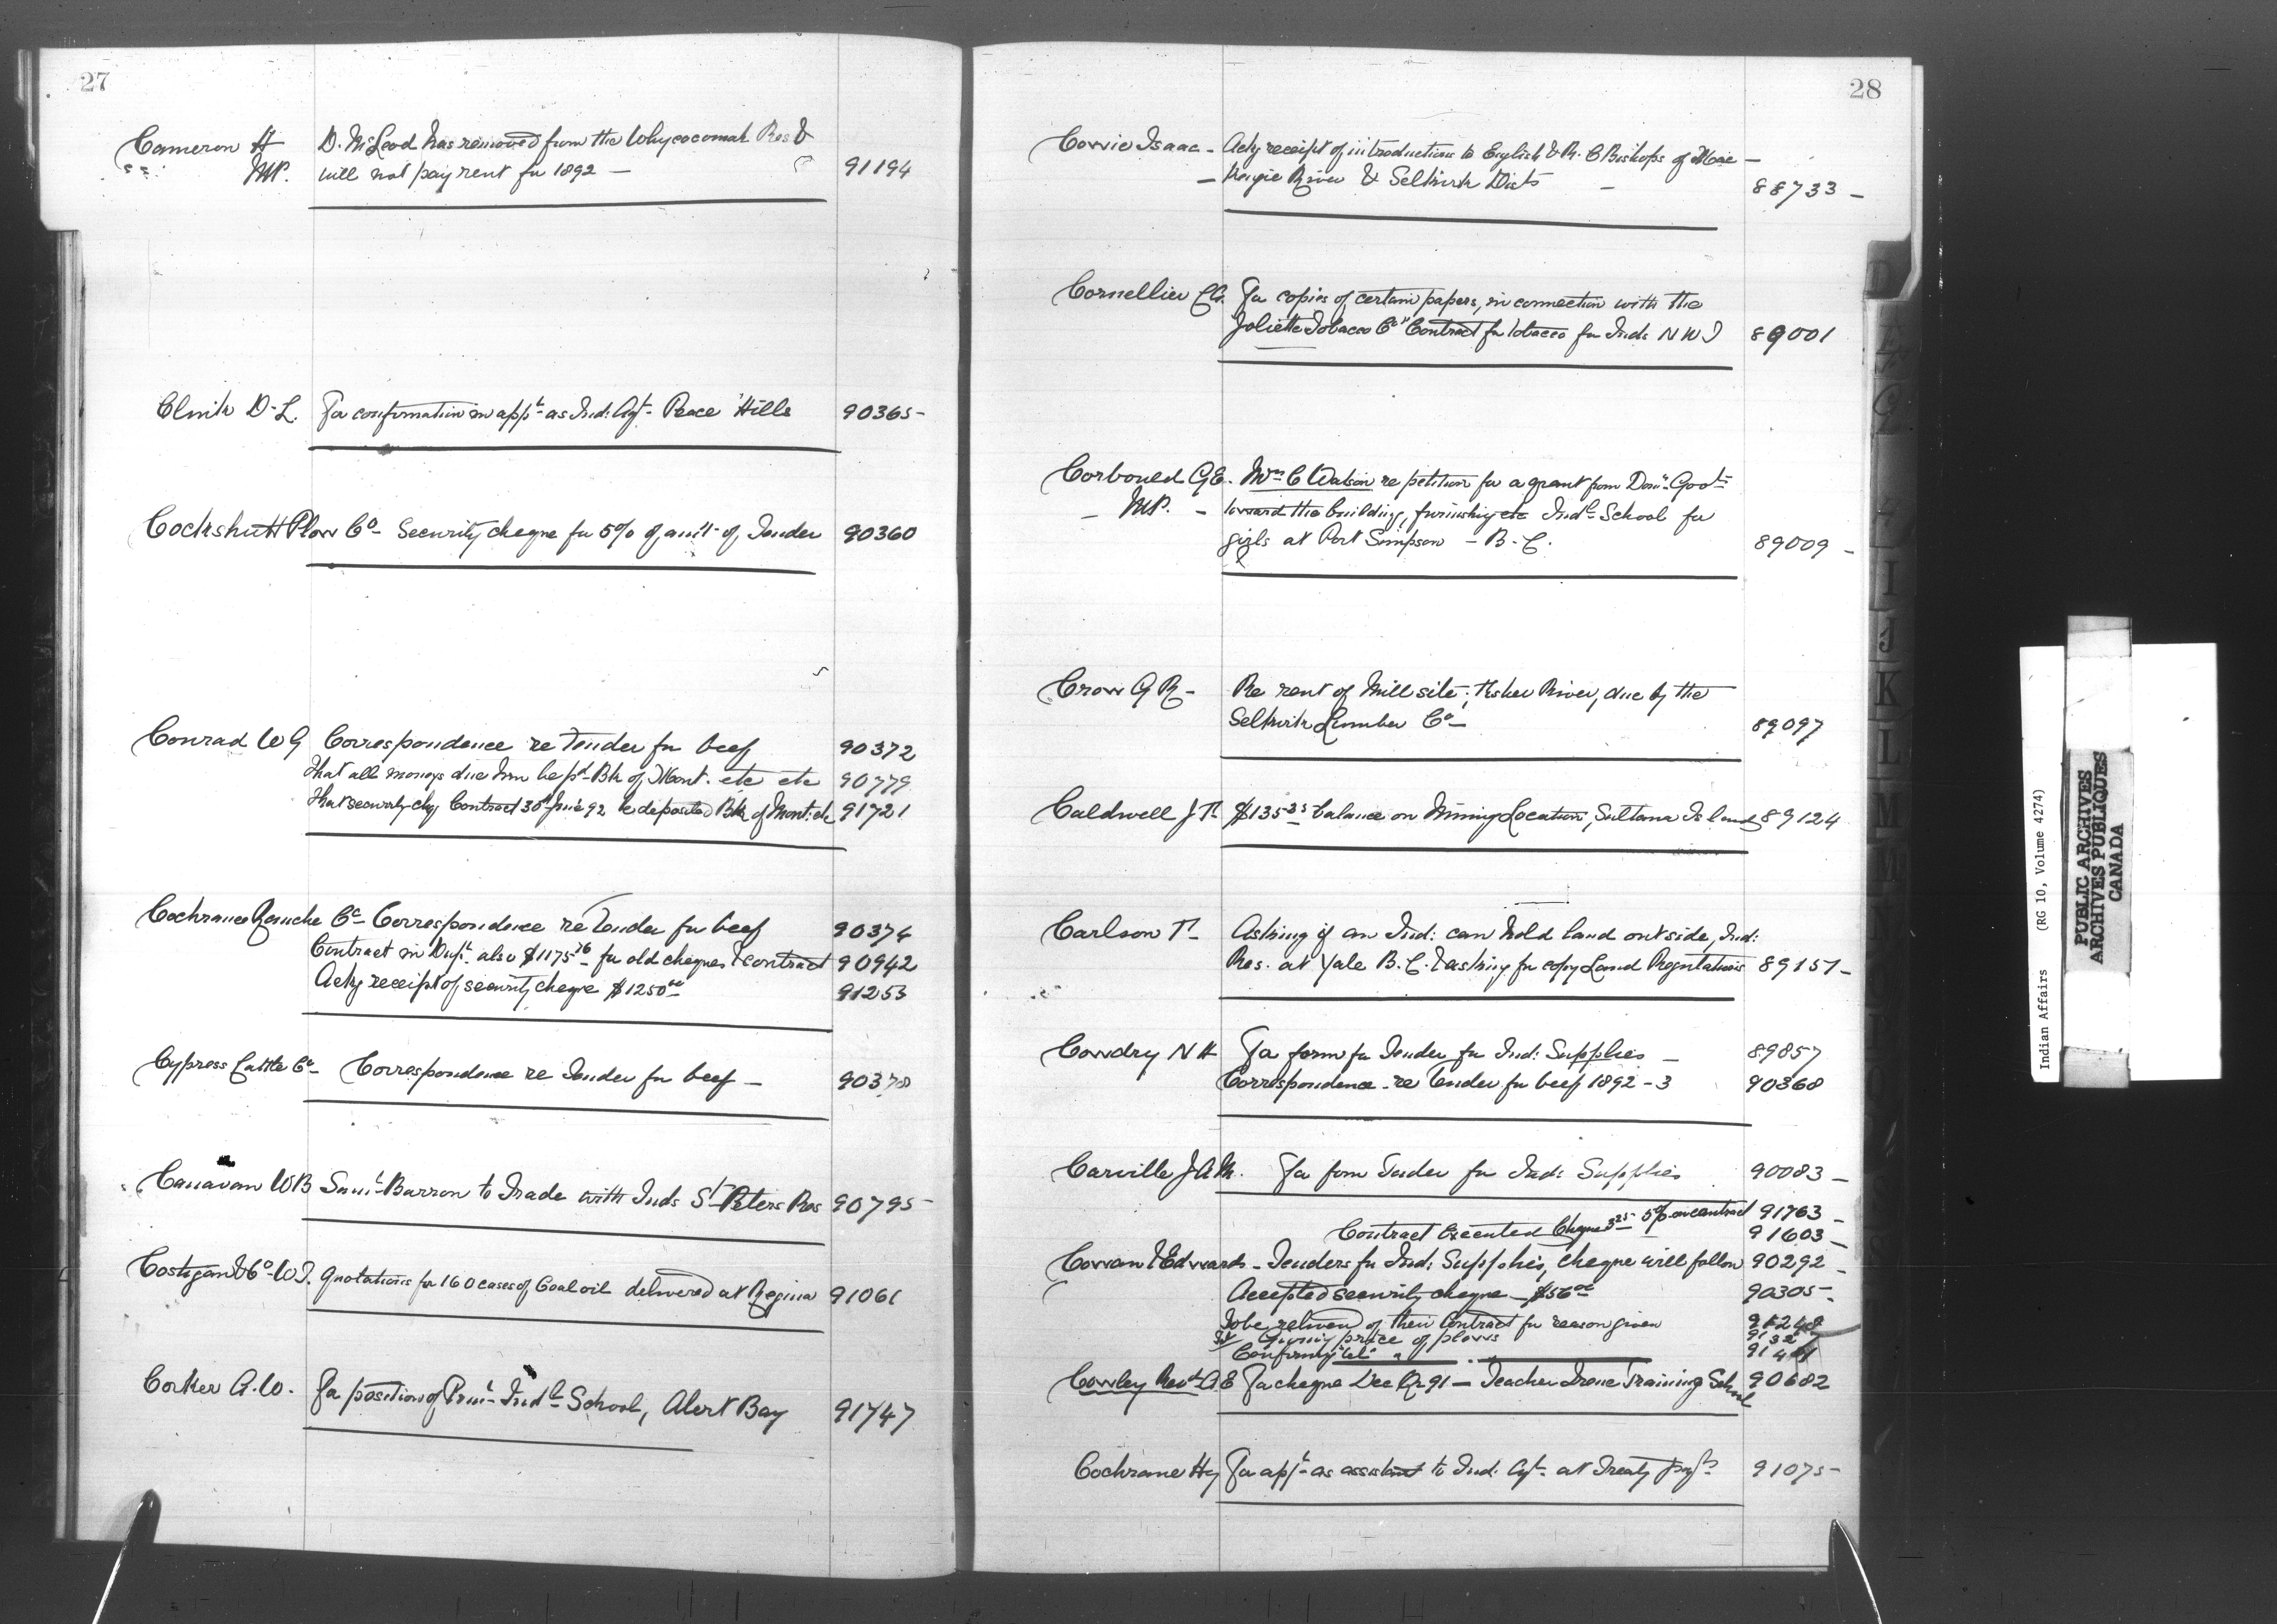 27
Cameron H D. McLeod has removed from the Whycocomah Res &
M.P. will not pay rent for 1892 — 91194
Clink D. L. For confirmation in appt. as Ind: Agt. Peace Hills 90365
Cockshutt Plow Co. Security cheque for 5% of amt. of Tender 90360
Conrad W G Correspondence re Tender for beef 90372
That all moneys due him be pd. Bk of Mont. etc etc 90779
That security chq Contract 30th June 92 be deposited Bk of Mont: etc 91721
Cochrane Ranche Co. Correspondence re Tender for beef 90374
Contract in Dupl. also $1175.76 for old cheques & contract 90942
Ackg receipt of security cheque $1250.00 91253
Cypress Cattle Co. Correspondence re Tender for beef — 90378
Canavan W B Saml. Barron to Trade with Inds St. Peters Res 90795
Costigan & Co. W. J. Quotations for 160 cases of Coal oil delivered at Regina 91061
Corker A. W. For position of Prinl. Indl. School, Alert Bay 91747
28
Cowie Isaac - Ackg receipt of introductions to English & R. C Bishops of Mac —
— Kenzie River & Selkirk Dists — 88733 —
Cornellier C.A. For copies of certain papers, in connection with the
Joliette Tobacco Co's Contract for tobacco for Inds N W T 89001
Corbould G E. Mrs C Watson re petition for a grant from Domn. Govt.
— M.P. — toward the building, furnishing etc Indl. School for
girls at Port Simpson — B. C. 89009 —
Crow G R — Re rent of Mill site, Fisher River, due by the
Selkirk Lumber Co. 89097
Caldwell J F. $135.25 balance on Mining Location, Sultana Island 89124
Carlson T. Asking if an Ind: can hold land outside, Ind:
Res. at Yale B. C. & asking for copy Land Regulations 89151 —
Cowdry N H For form for Tender for Ind: Supplies — 89857
Correspondence re Tender for beef 1892 - 3 90368
Carville J A M. For form Tender for Ind: Supplies 90083 —
5% on contract 91763 —
Contract Executed Cheque 91603 —
Cowan & Edwards — Tenders for Ind: Supplies, cheque will follow 90292 —
Accepted security cheque — $56.00 90305 —
To be relieved of their Contract for reason given
Giving price of plows
Confirmg "tel"
Cowley Revd. A E For cheque Dec Qr 91 — Teacher Irene Training School 90682
Cochrane Hy For appt. as assistant to Ind: Agt. at Treaty payts. 91075 —
D
I
J
K
L
M
Indian Affairs (RG 10, Volume 4274)
PUBLIC ARCHIVES
ARCHIVES PUBLIQUES
CANADA